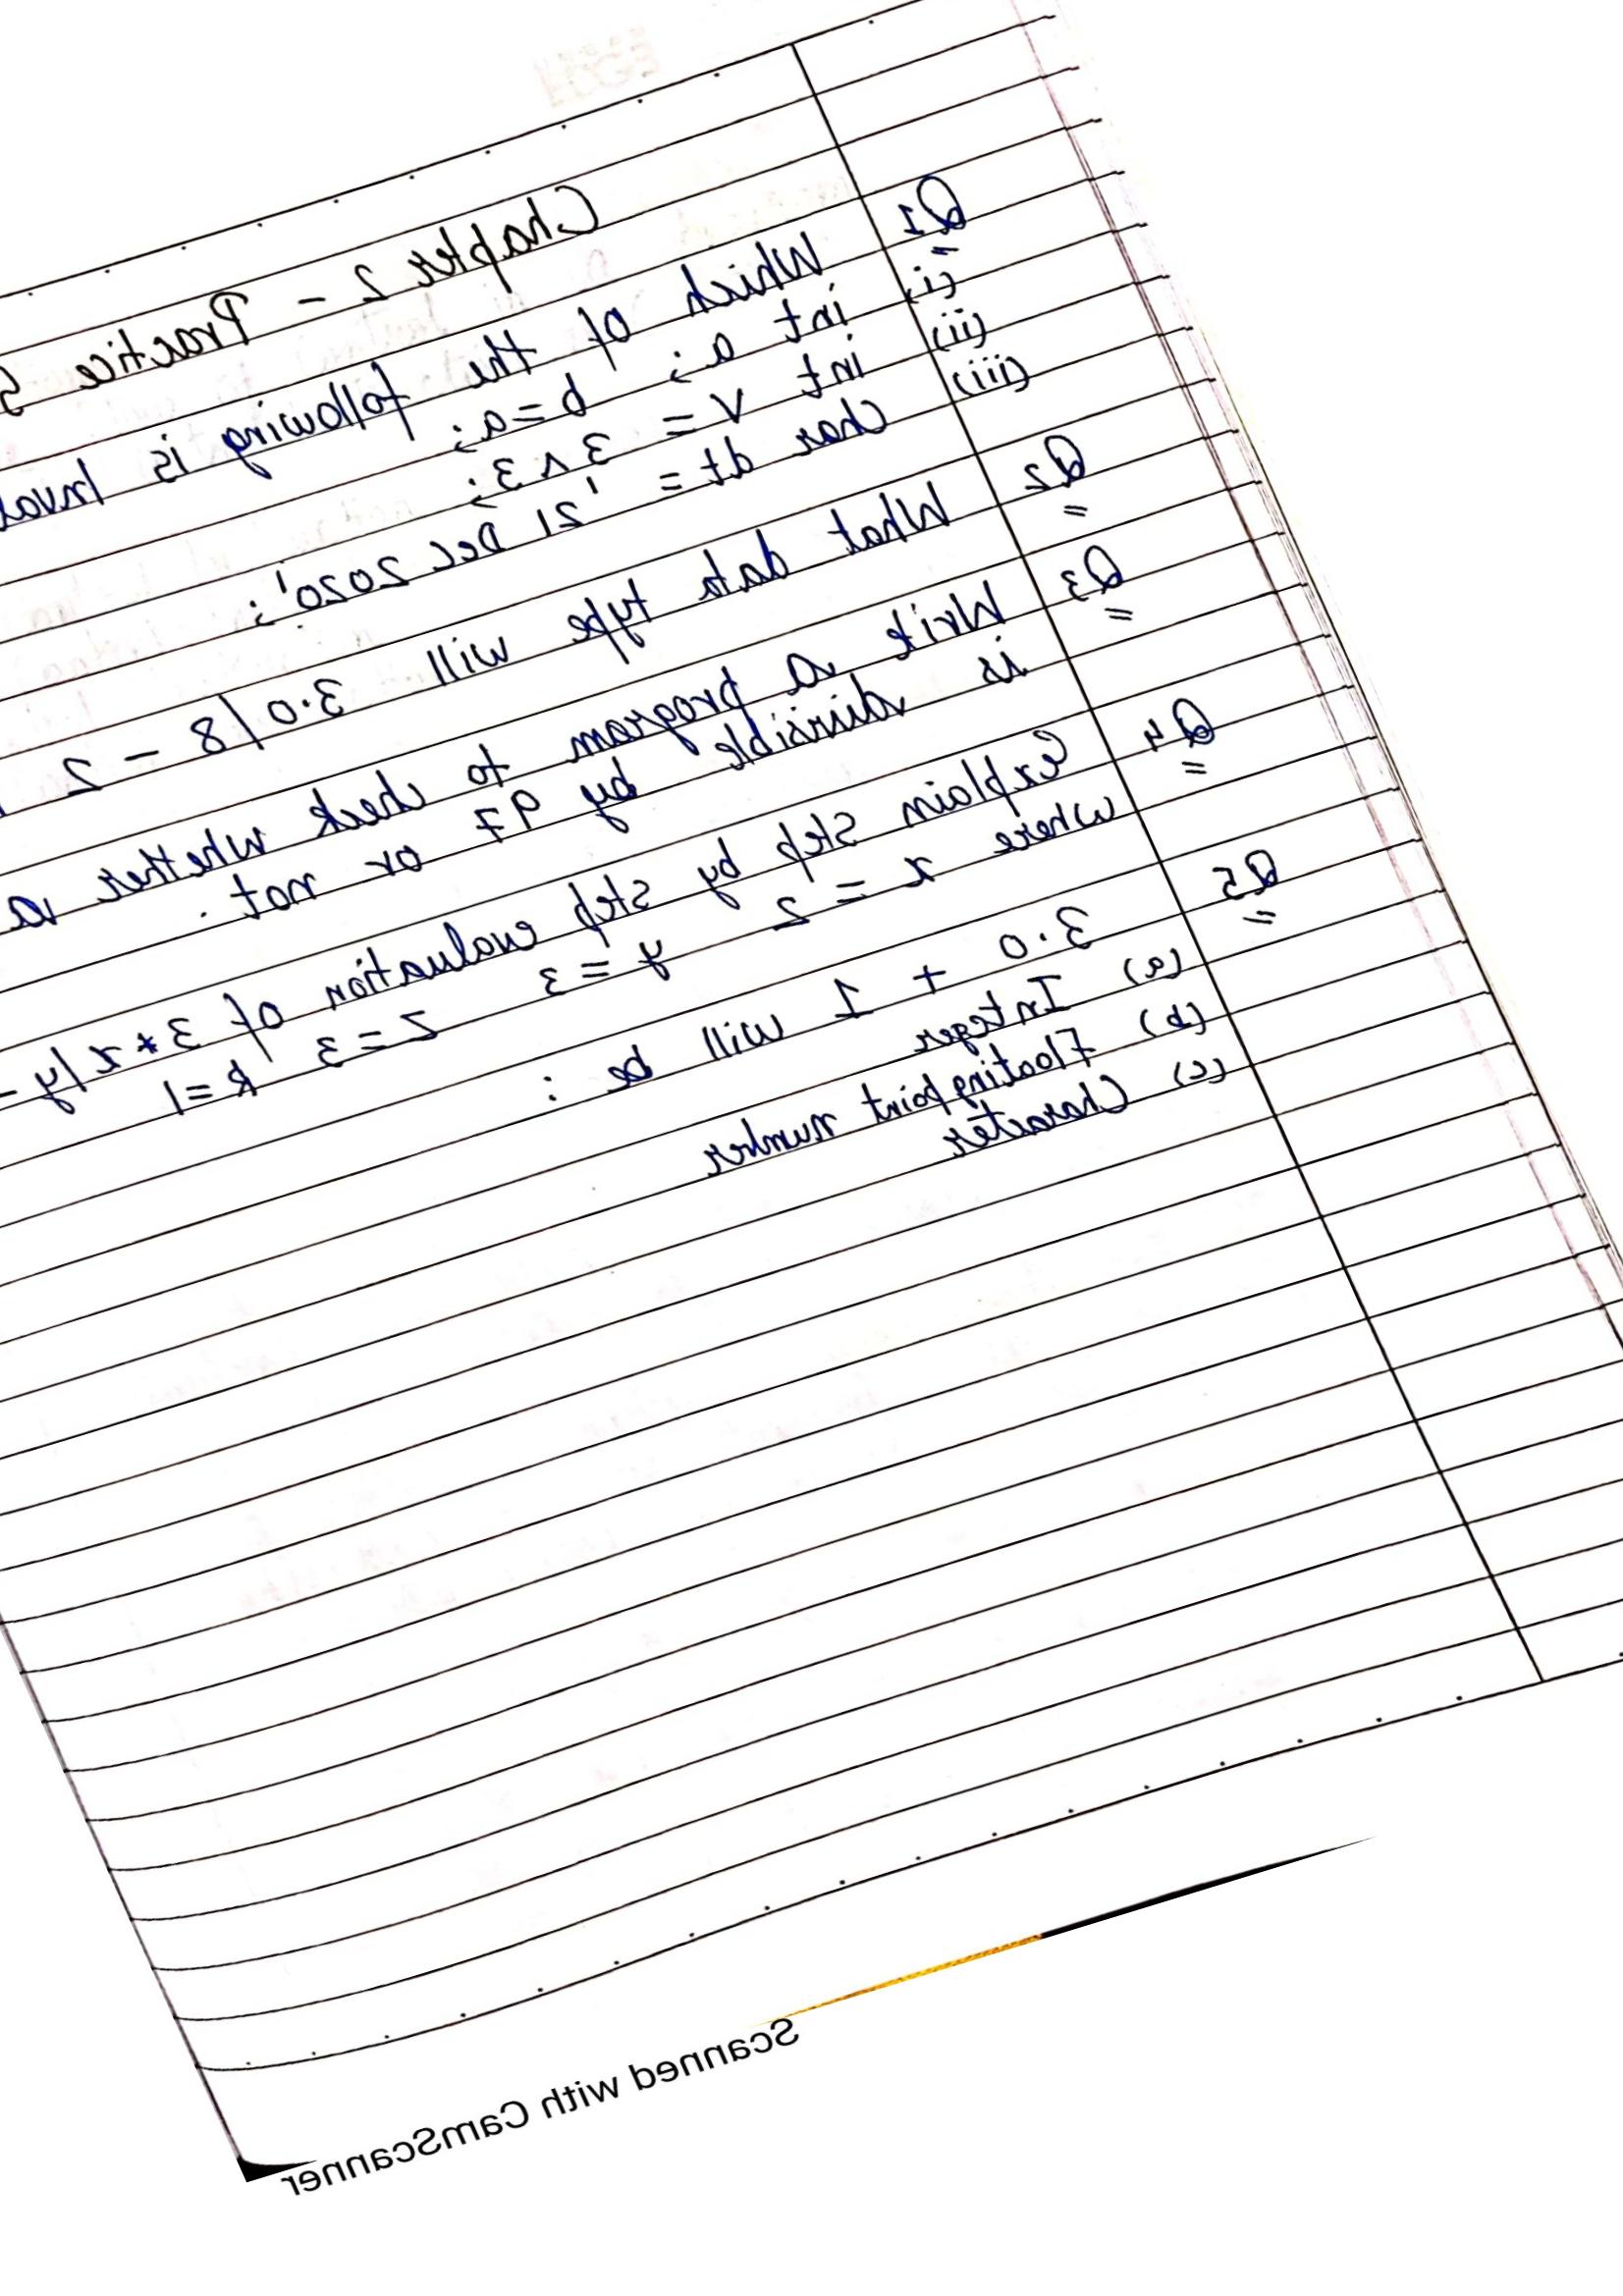 Chapter 2 - Practice S
Q1 Which of the following is Inval
(i) int a; b=a;
(ii) int v = 3^3;
(iii) char dt = '21 Dec 2020';
Q2 What data type will 3.0/8 - 2
Q3 Write a program to check whether a
is divisible by 97 or not.
Q4 Explain step by step evaluation of 3*x/y -
where x=2 y=3 z=3 k=1
Q5 3.0 + 1 will be :
(a) Integer
(b) Floating point number
(c) Character
Scanned with CamScanner